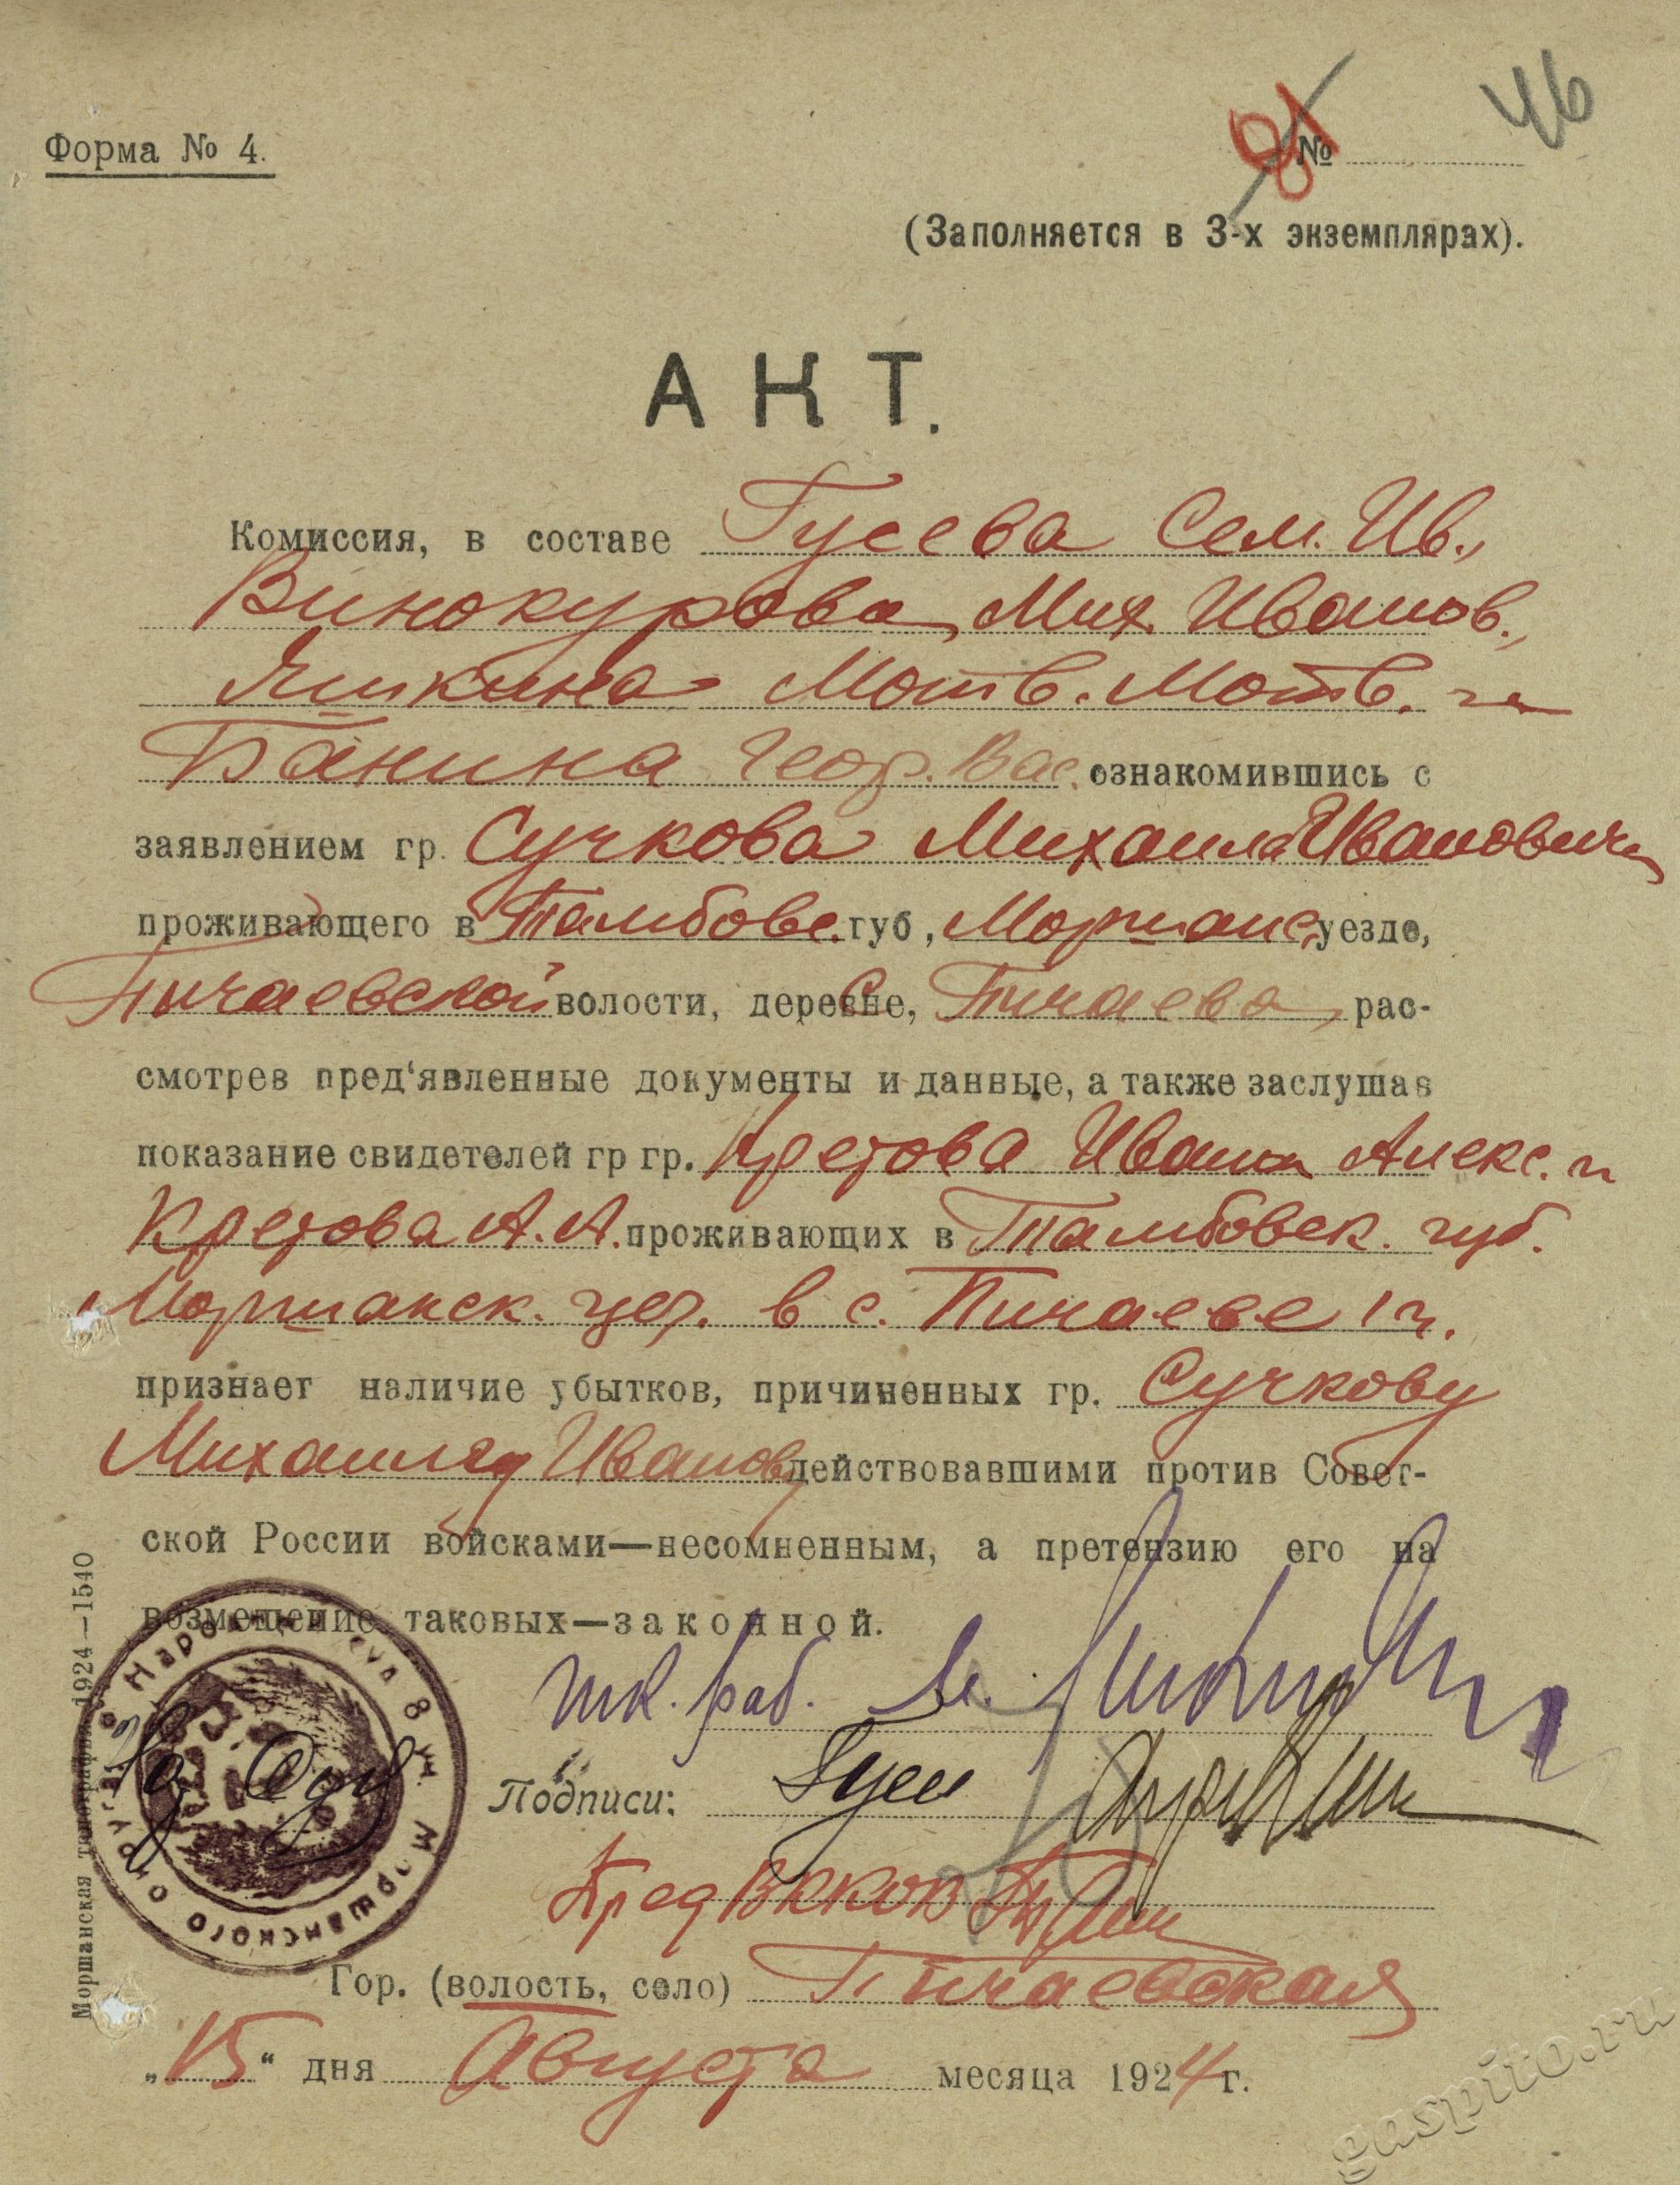 46
81
Форма № 4.
№
(Заполняется в 3-х экземплярах).
АКТ.
Комиссия, в составе Гусева Сем. Ив.,
Винокурова, Мих. Иванов.,
Яшкина Матв. Матв. и
Банина Геор. Вас. ознакомившись с
заявлением гр. Сучкова Михаила Ивановича
проживающего в Тамбовс. губ, Моршанс. уезде,
Пичаевской волости, деревне, с Пичаева, рас-
смотрев пред'явленные документы и данные, а также заслушав
показание свидетелей гр гр. Кретова Ивана Алекс. и
Кретова А. А. проживающих в Тамбовск. губ.
Моршанск. уез. в с. Пичаеве 1 ч.
признает наличие убытков, причиненных гр. Сучкову
Михаилу Иванов. действовавшими против Совет-
ской России войсками—несомненным, а претензию его на
возмещение таковых—законной.
Подписи: Гусев
Пред ВККОВ
Гор. (волость, село) Пичаевская
„15“ дня Августа месяца 1924 г.
Моршанская типография 1924—1540
Народный суд 8 уч. Моршанского округа
gaspito.ru